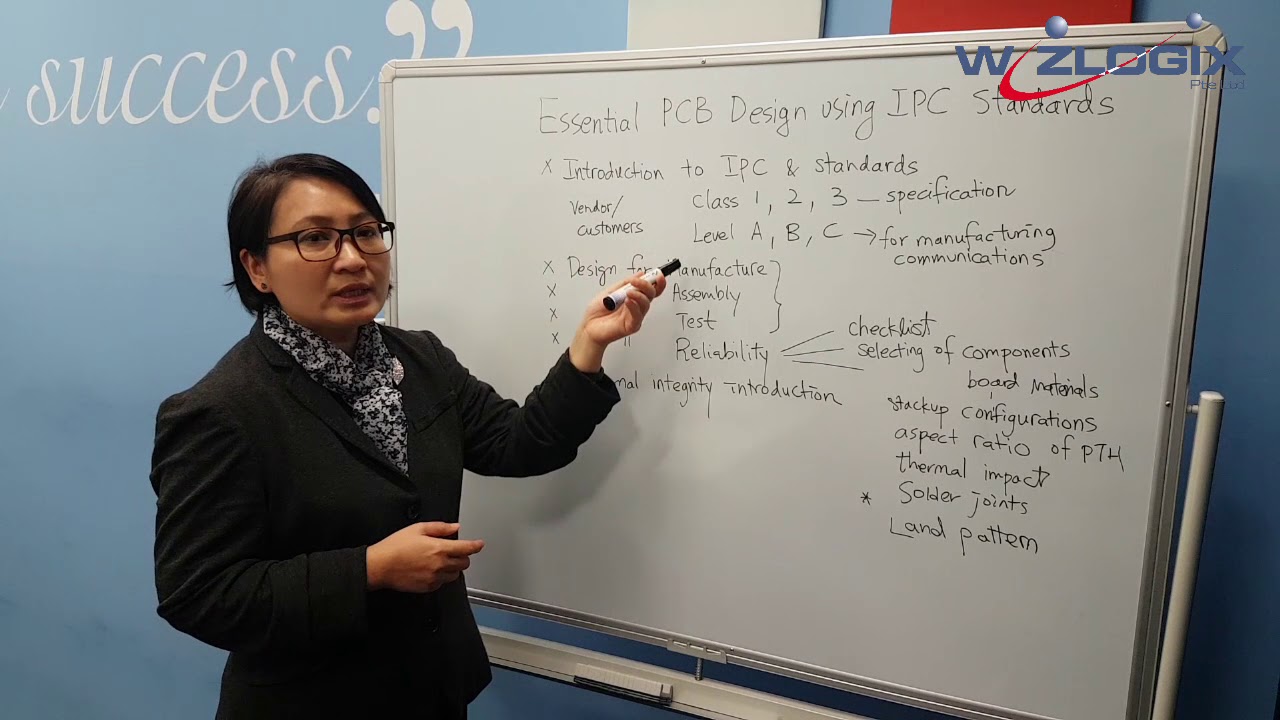 success."
WIZLOGIX
Pte Ltd
Essential PCB Design using IPC Standards
x Introduction to IPC & standards
Vendor/
customers
Class 1, 2, 3 — specification
Level A, B, C → for manufacturing
communications
x Design for Manufacture
x Assembly
x Test
x " Reliability
checklist
selecting of components
board materials
stackup configurations
aspect ratio of PTH
thermal impact
* Solder joints
Land pattern
integrity introduction